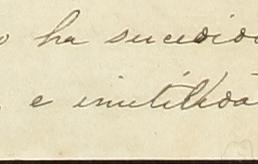 o ha sucedido
e inutilidá